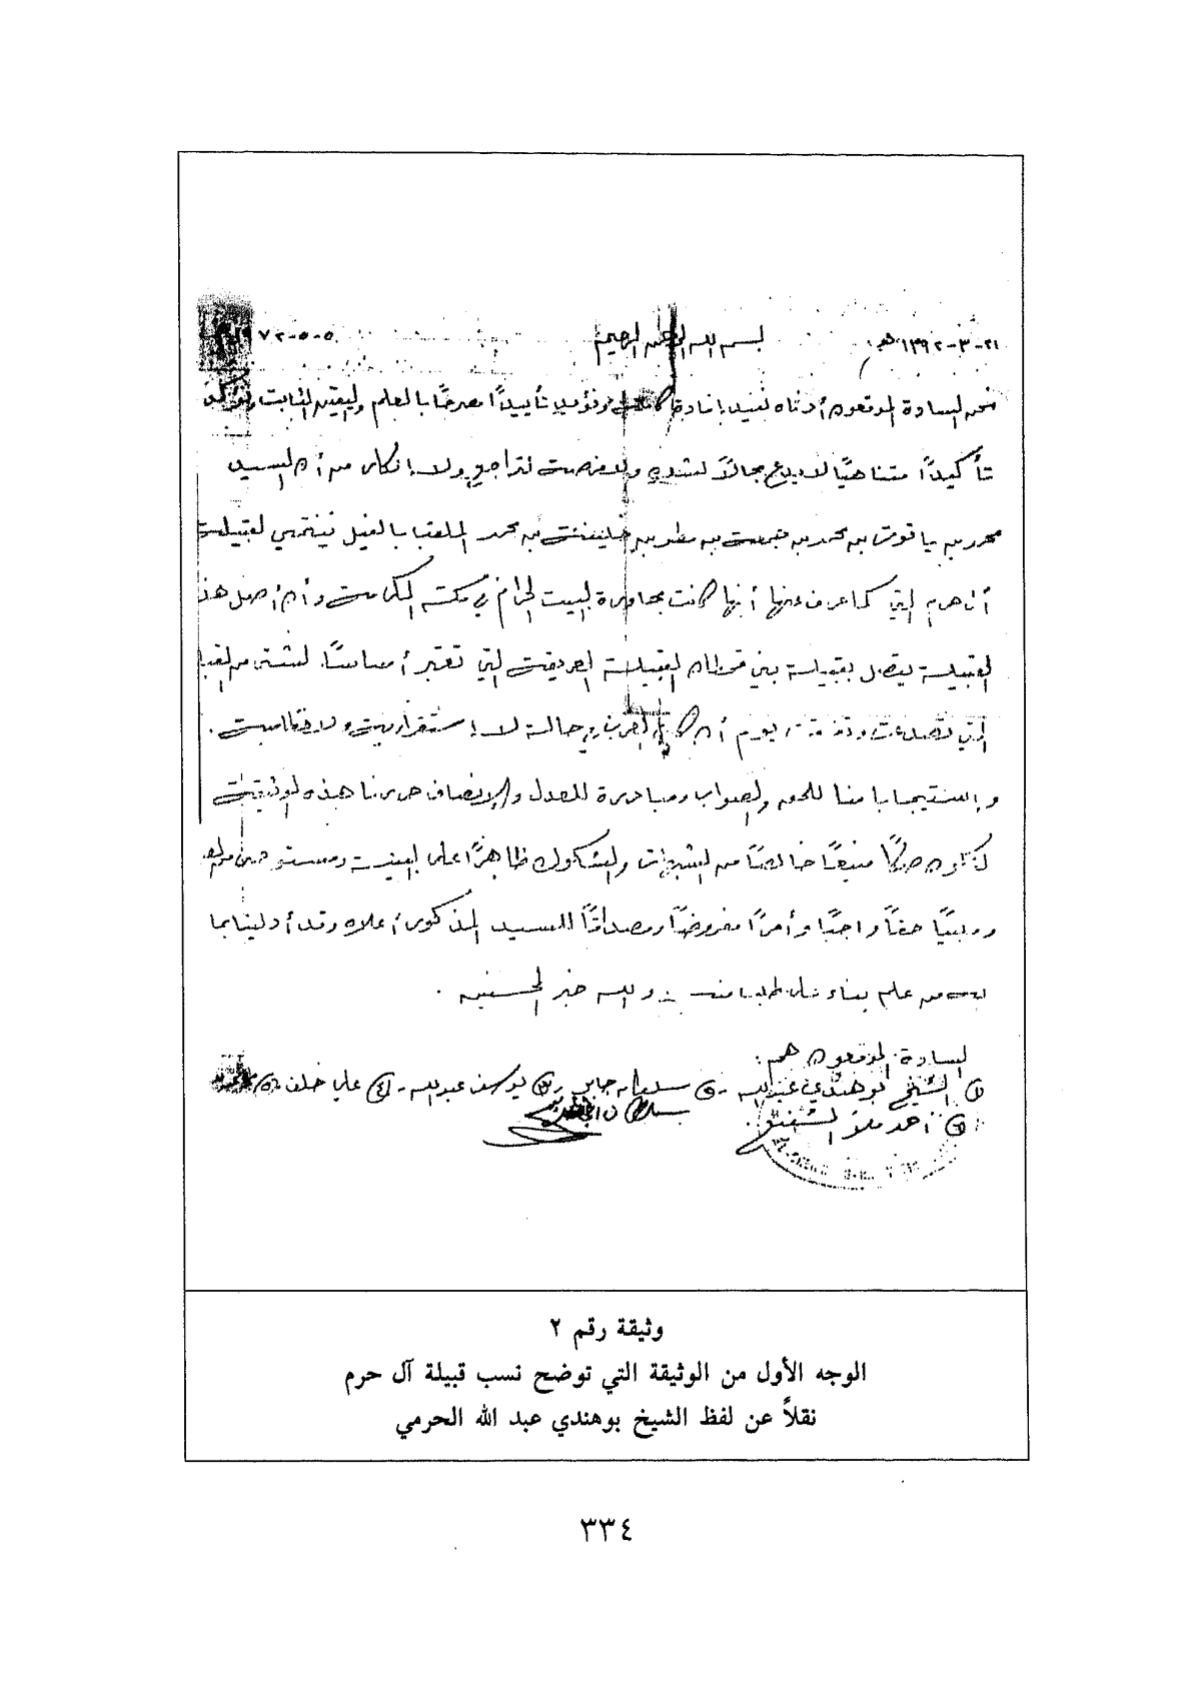 ٢١-٣-١٣٩٢هـ بسم الله الرحمن الرحيم ٥-٥-١٩٧٢
نحن السادة الموقعون أدناه نفيد بإفادة كاملة ونؤيد تأييداً مصرحاً بالعلم واليقين الثابت ونؤكد
تأكيداً متناهياً لا يدع مجالاً للشك ولا فرصة لتراجع ولا إنكار من أن السيد
محمد بن ياقوت بن محمد بن جمعة بن مطر بن خليفة بن محمد الملقب بالفيل ينتمي لقبيلة
آل حرم التي كما عرف عنها أنها كانت مجاورة للبيت الحرام في مكة المكرمة وأن أصل هذه
القبيلة يتصل بقبيلة بني قحطان القبيلة العريقة التي تعتبر أساساً لشتى من القبا
التي تصدعت يوم أن كان العرب في حالة لا إستقرارية ولا نظامية.
وإستيجابا منا للحق والصواب ومبادرة للعدل والإنصاف حررنا هذه الوثيقة
لتكون صكاً منيعاً خالصاً من الشبهات والشكوك ظاهراً على البينة
حقاً واجباً وأمراً مفروضاً ومصداقاً للسيد المذكور أعلاه وقد أدلينا بما
لدينا من علم بناء على طلب منه والله خير المحسنين.
السادة الموقعون هم:
١) الشيخ بوهندي عبدالله - ٢) سلمان جابر - ٣) يوسف عبدالله - ٤) علي خلف ٥)
٦) أحمد ملا
وثيقة رقم ٢
الوجه الأول من الوثيقة التي توضح نسب قبيلة آل حرم
نقلاً عن لفظ الشيخ بوهندي عبد الله الحرمي
٣٣٤